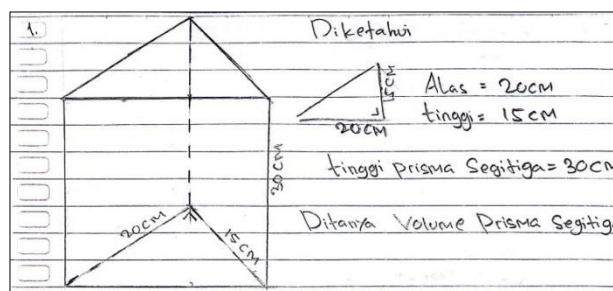 1.
Diketahui
15CM
20CM
Alas = 20CM
tinggi = 15CM
30CM
tinggi prisma segitiga = 30CM
20CM
15CM
Ditanya Volume Prisma Segitiga